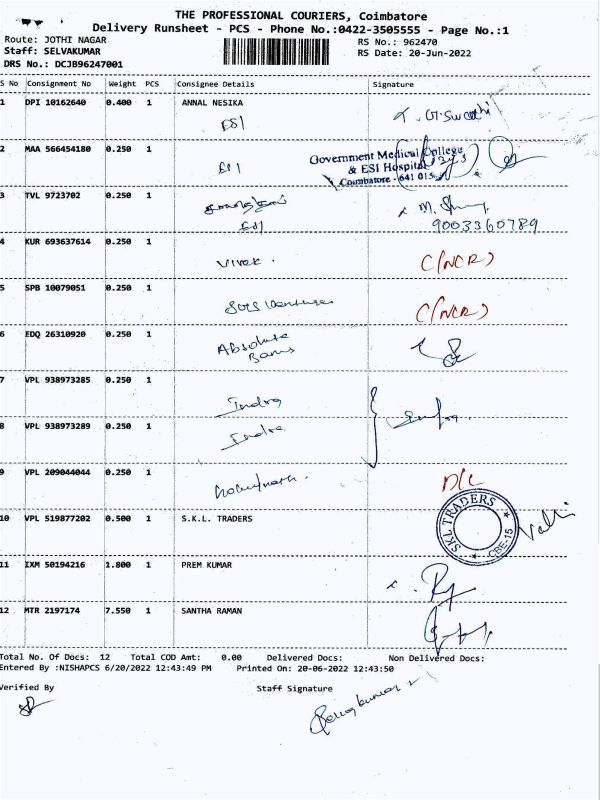 THE PROFESSIONAL COURIERS, Coimbatore
Delivery Runsheet - PCS - Phone No.:0422-3505555 - Page No.:1
Route: JOTHI NAGAR
RS No.: 962470
Staff: SELVAKUMAR
RS Date: 20-Jun-2022
DRS No.: DCJB96247001
S No Consignment No Weight PCS Consignee Details Signature
1 DPI 10162640 0.400 1 ANNAL NESIKA
ESI
2 MAA 566454180 0.250 1
Government Medical College
& ESI Hospital
Coimbatore - 641 015
3 TVL 9723702 0.250 1
ESI
9003360789
4 KUR 693637614 0.250 1 Vivek. C(NCR)
5 SPB 10079051 0.250 1 C(NCR)
6 EDQ 26310920 0.250 1 Absolute
7 VPL 938973285 0.250 1 Indra
8 VPL 938973289 0.250 1 Indra
9 VPL 209044044 0.250 1 D/L
10 VPL 519877202 0.500 1 S.K.L. TRADERS
SKL TRADERS
CBE-15
11 IXM 50194216 1.800 1 PREM KUMAR
12 MTR 2197174 7.550 1 SANTHA RAMAN
Total No. Of Docs: 12 Total COD Amt: 0.00 Delivered Docs: Non Delivered Docs:
Entered By :NISHAPCS 6/20/2022 12:43:49 PM Printed On: 20-06-2022 12:43:50
Verified By Staff Signature